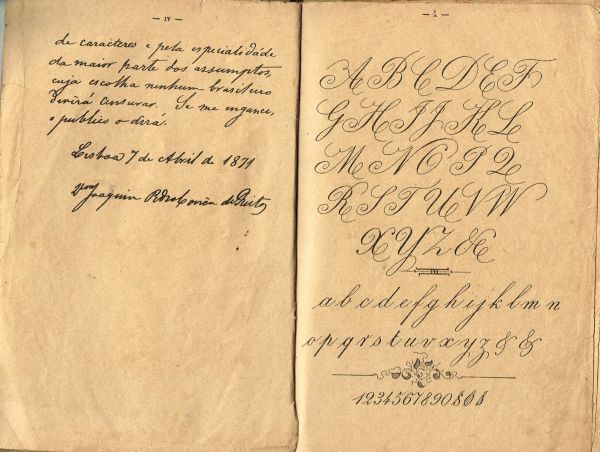 — IV —
de caracteres e pela especialidade
da maior parte dos assumptos,
cuja escolha nenhum brasileiro
deverá censurar. Se me enganei,
o publico o dirá.
Lisboa 7 de Abril de 1871
Joaquim Corrêa de
A B C D E F
G H I J K L
M N O P Q
R S T U V W
X Y Z &
a b c d e f g h i j k l m n
o p q r s t u v x y z & &
1234567890